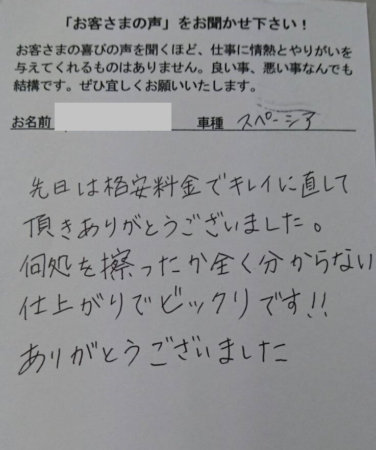 「お客さまの声」をお聞かせ下さい！
お客さまの喜びの声を聞くほど、仕事に情熱とやりがいを
与えてくれるものはありません。良い事、悪い事なんでも
結構です。ぜひ宜しくお願いいたします。
お名前 車種 スペーシア
先日は格安料金でキレイに直して
頂きありがとうございました。
何処を擦ったか全く分からない
仕上がりでビックリです!!
ありがとうございました